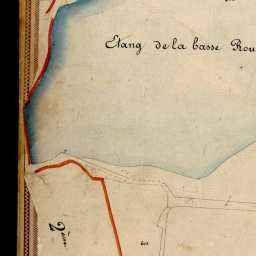 Etang de la basse Rou
2ème